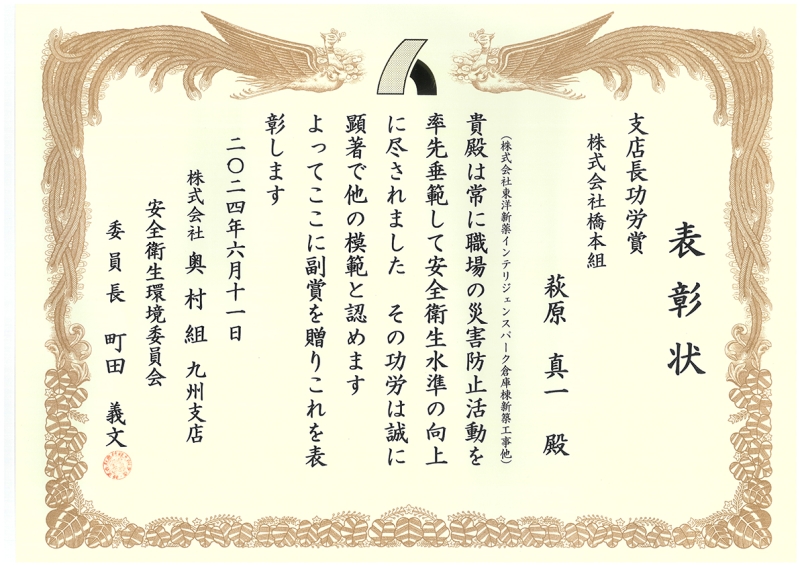 表彰状
支店長功労賞
株式会社橋本組
萩原 真一 殿
(株式会社東洋新薬インテリジェンスパーク倉庫棟新築工事他)
貴殿は常に職場の災害防止活動を
率先垂範して安全衛生水準の向上
に尽されました その功労は誠に
顕著で他の模範と認めます
よってここに副賞を贈りこれを表
彰します
二〇二四年六月十一日
株式会社 奥村組 九州支店
安全衛生環境委員会
委員長 町田 義文